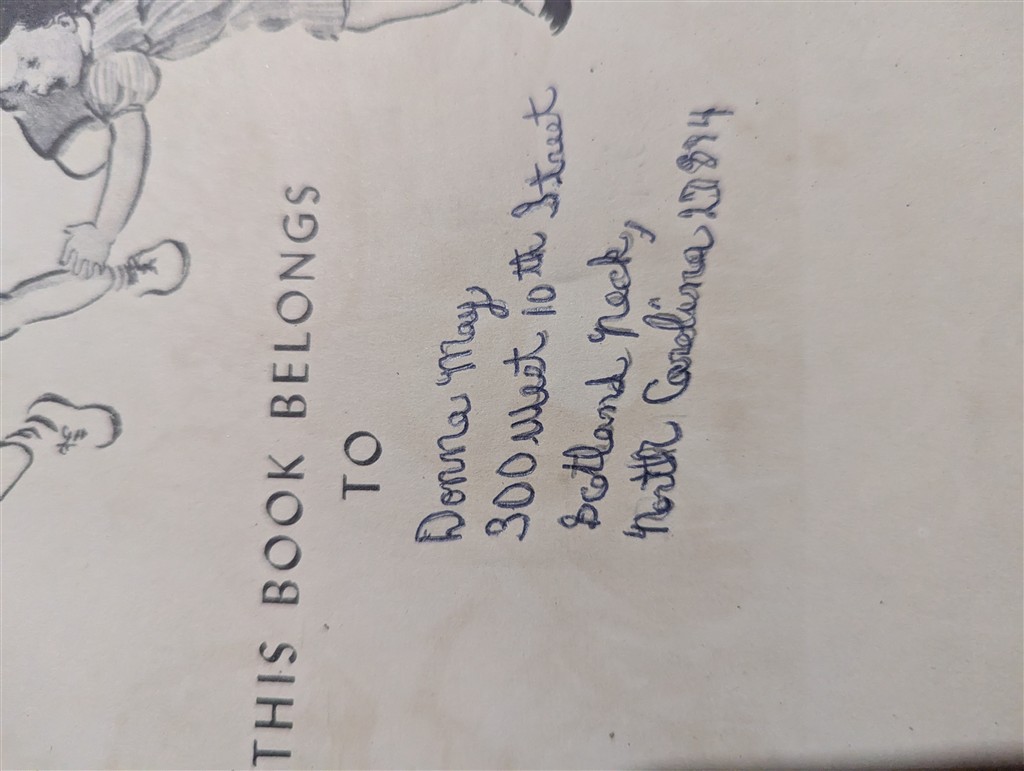 THIS BOOK BELONGS
TO
Donna May
300 West 10th Street
Scotland Neck,
North Carolina 27874